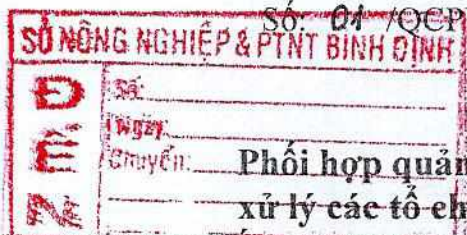 Số: 01 /QCP
SỞ NÔNG NGHIỆP & PTNT BÌNH ĐỊNH
ĐẾN
Số:
Ngày:
Chuyển:
Phối hợp quản
xử lý các tổ ch